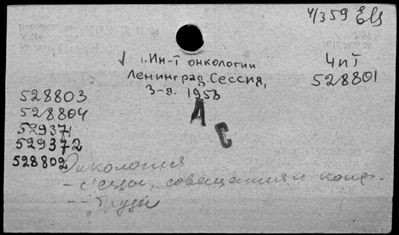 4/359 Els
√ 1. Ин-т онкологии
Ленинград, Сессия,
3-я. 1958
Чит
528801
528803
528804
529371
529372
528802
А
С
Онкология
- съезды, совещания и конф.
- Труды